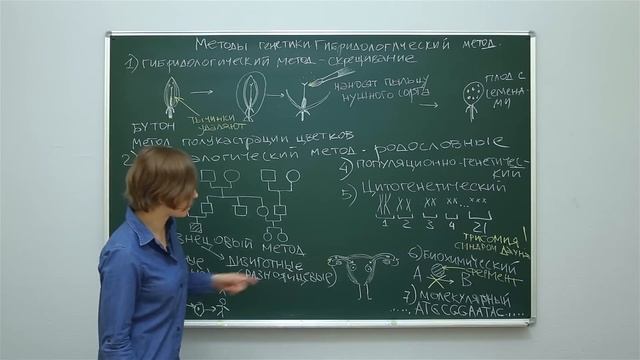 Методы генетики Гибридологический метод.
1) Гибридологический метод - скрещивание
Бутон
тычинки
удаляют
наносят пыльцу
нужного сорта
плод с
семена-
ми
метод полукастрации цветков
2) логический метод - родословные
4) Популяционно-генетичес-
кий
5) Цитогенетический
1 2 3 4 21
трисомия
синдром Дауна
знецовый метод
дизиготные
(разнояйцевые)
6) Биохимический
фермент
A B
7) молекулярный
..... ATGCGGAATAC.....